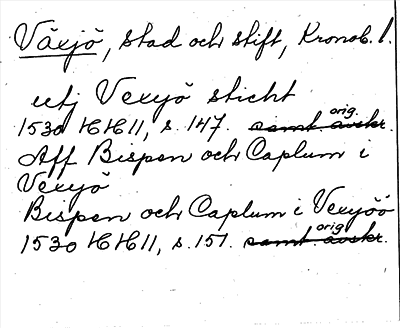 Växjö, stad och stift, Kronob. l.
utj Vexyö sticht
1530 HH 11, s. 147. samt avskr. orig.
Aff Bispen och Caplum i
Vexyö
Bispen och Caplum i Vexyöö
1530 HH 11, s. 151. samt avskr. orig.